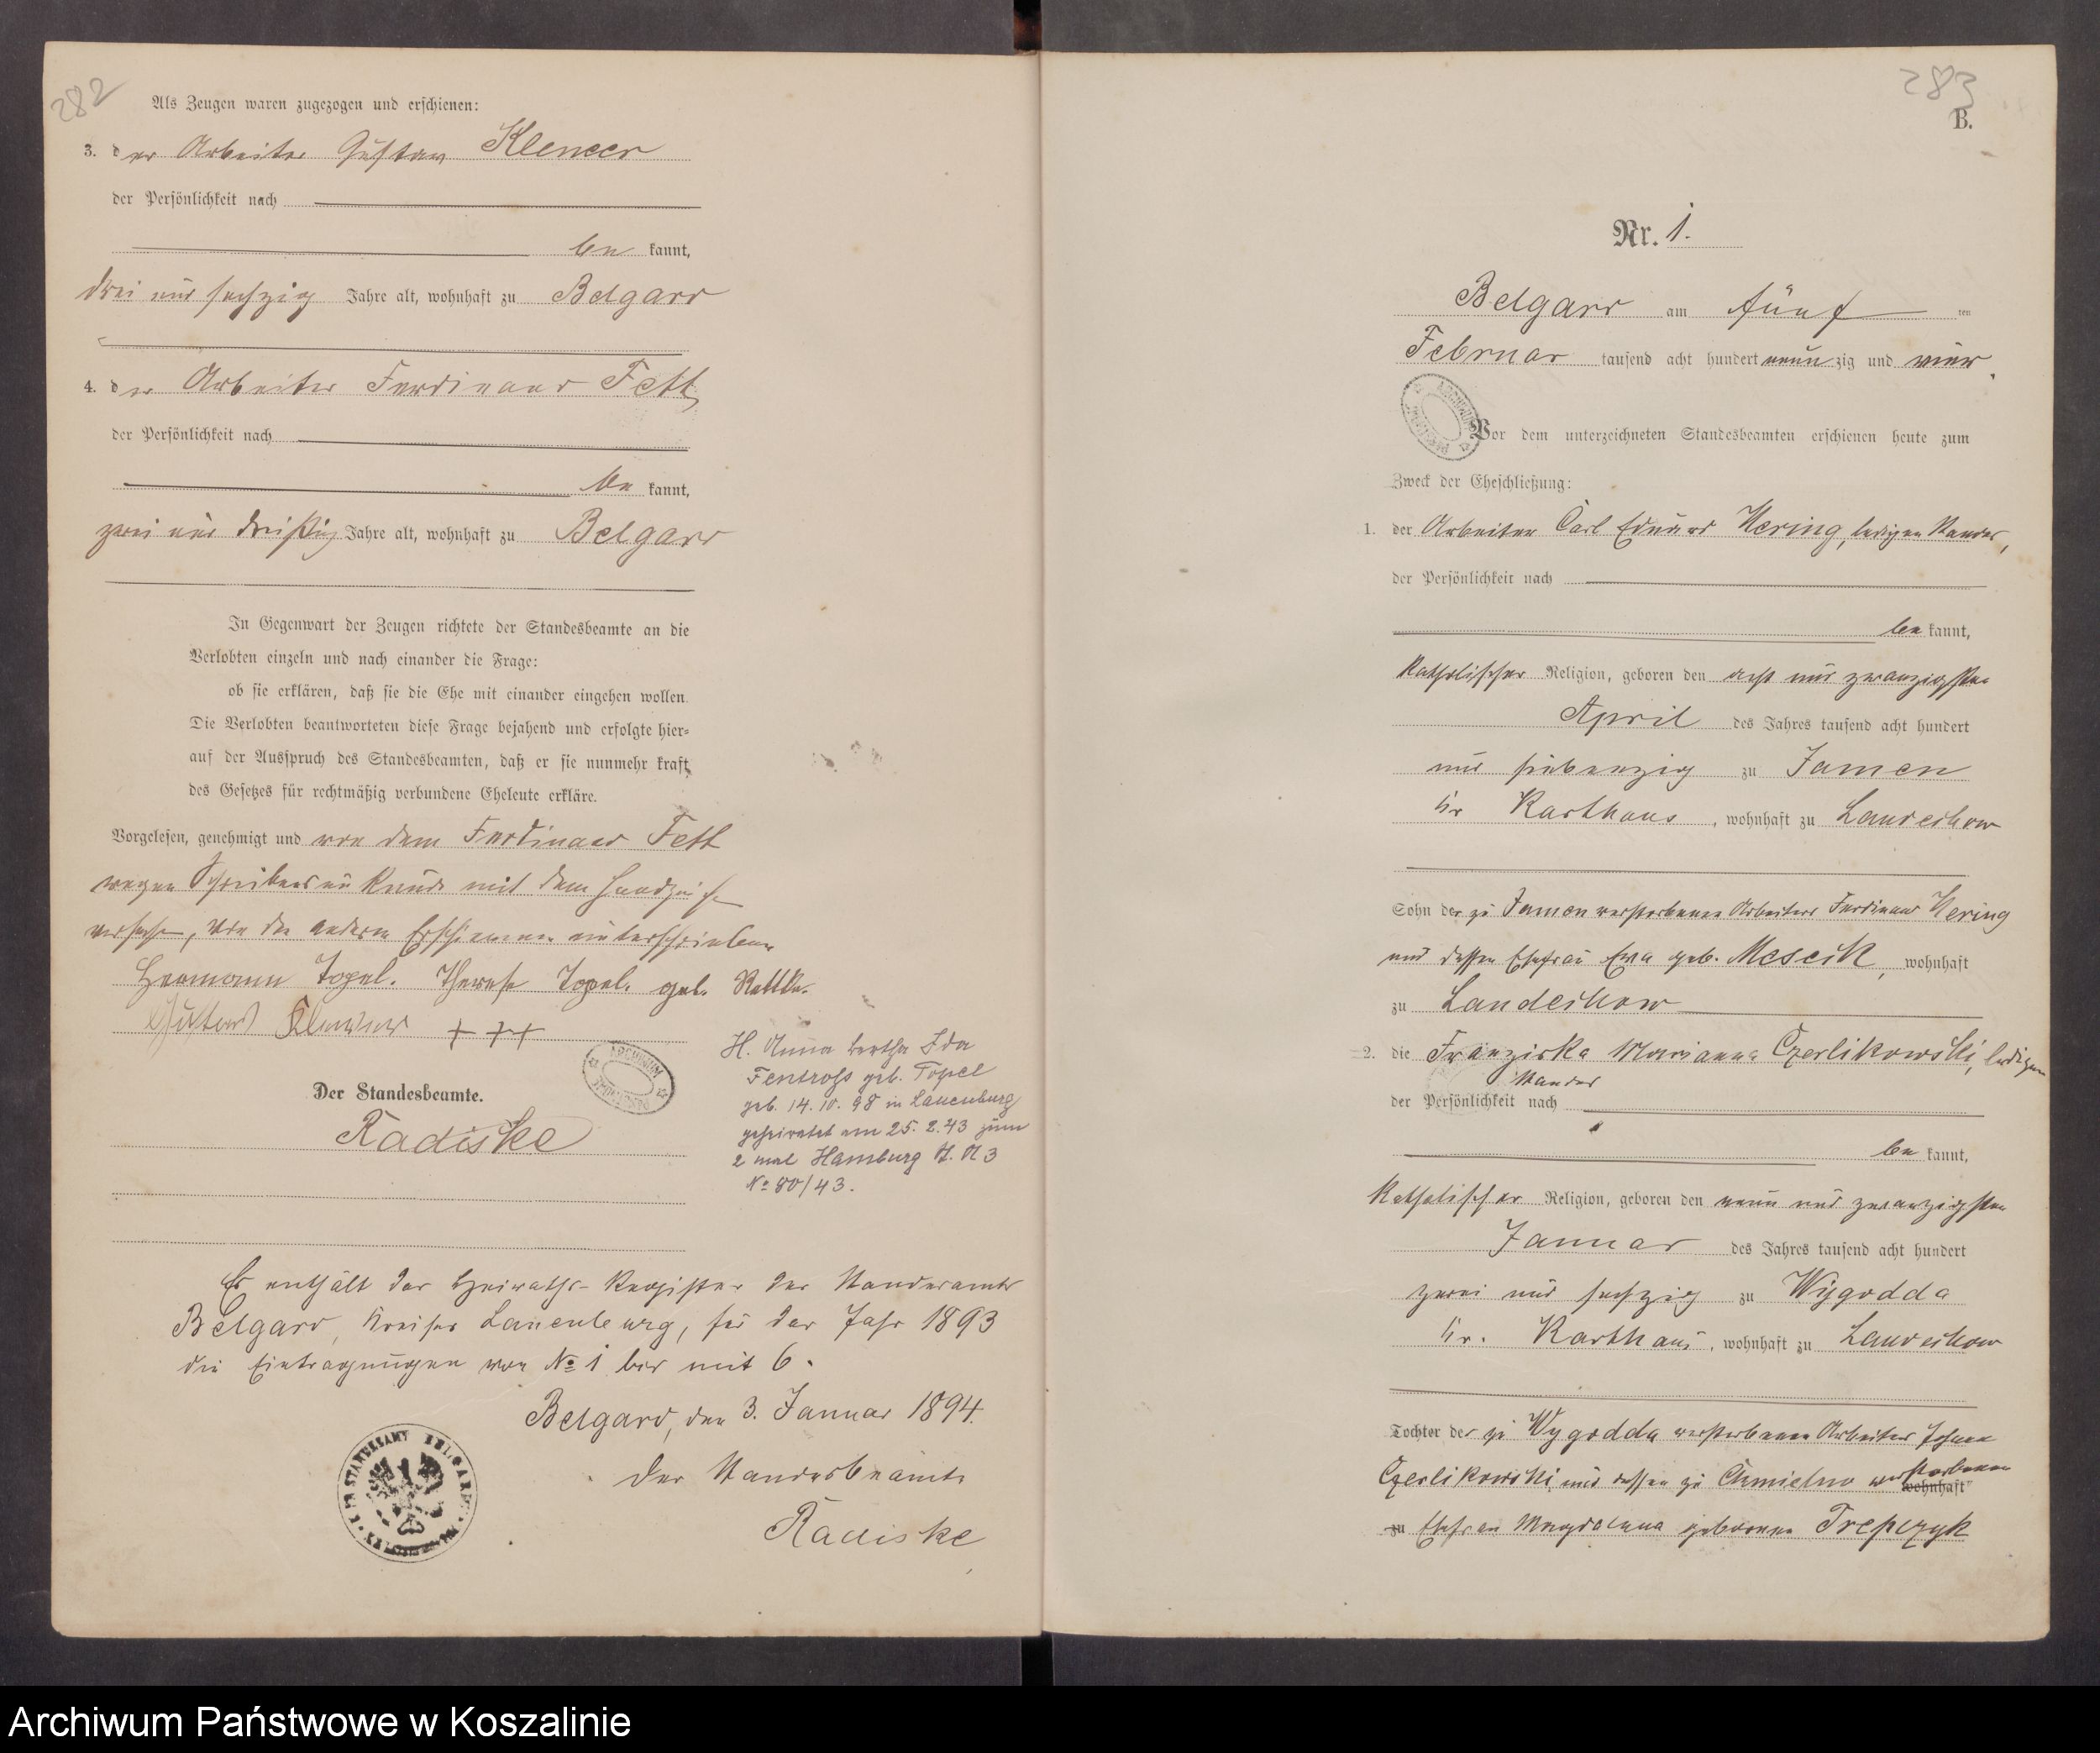 282
Als Zeugen waren zugezogen und erschienen:
3. der Arbeiter Gustav Klemer
der Persönlichkeit nach
be kannt,
drei und sechzig Jahre alt, wohnhaft zu Belgard
4. der Arbeiter Ferdinand Fett
der Persönlichkeit nach
be kannt,
zwei und dreißig Jahre alt, wohnhaft zu Belgard
In Gegenwart der Zeugen richtete der Standesbeamte an die
Verlobten einzeln und nach einander die Frage:
ob sie erklären, daß sie die Ehe mit einander eingehen wollen.
Die Verlobten beantworteten diese Frage bejahend und erfolgte hier-
auf der Ausspruch des Standesbeamten, daß er sie nunmehr kraft
des Gesetzes für rechtmäßig verbundene Eheleute erkläre.
Vorgelesen, genehmigt und von dem Ferdinand Fett
wegen Schreibensunkunde mit dem Handzeichen
versehen, von den andern Erschienenen unterschrieben
Hermann Topel. Therese Topel. geb. Rettke.
Gustav Klemer +++
Der Standesbeamte.
Radiske
H. Anna Bertha Ida
Fentroß geb. Topel
geb. 14.10.98 in Lauenburg
geheiratet am 25.2.43 zum
2 mal Hamburg St. A 3
No 80/43.
Es enthält das Heiraths-Register des Standesamts
Belgard, Kreises Lauenburg, für das Jahr 1893
die Eintragungen von No 1 bis mit 6.
Belgard, den 3. Januar 1894.
Der Standesbeamte
Radiske
283
B.
Nr. 1.
Belgard am fünf ten
Februar tausend acht hundert neun zig und vier.
Vor dem unterzeichneten Standesbeamten erschienen heute zum
Zweck der Eheschließung:
1. der Arbeiter Carl Eduard Hering, ledigen Standes,
der Persönlichkeit nach
be kannt,
katholischer Religion, geboren den acht und zwanzigsten
April des Jahres tausend acht hundert
und siebenzig zu Jamen
Kr Karthaus, wohnhaft zu Landechow
Sohn des zu Jamen verstorbenen Arbeiters Ferdinand Hering
und dessen Ehefrau Eva geb. Mescik, wohnhaft
zu Landechow
2. die Franziska Marianna Czerlikowski, ledigen
Standes
der Persönlichkeit nach
be kannt,
katholischer Religion, geboren den neun und zwanzigsten
Januar des Jahres tausend acht hundert
zwei und sechzig zu Wygodda
Kr. Karthaus, wohnhaft zu Landechow
Tochter des zu Wygodda verstorbenen Arbeiters Johann
Czerlikowski, und dessen zu Chmielno verstorbenen
wohnhaft
zu Ehefrau Magdalena geborenen Trepczyk
Archiwum Państwowe w Koszalinie